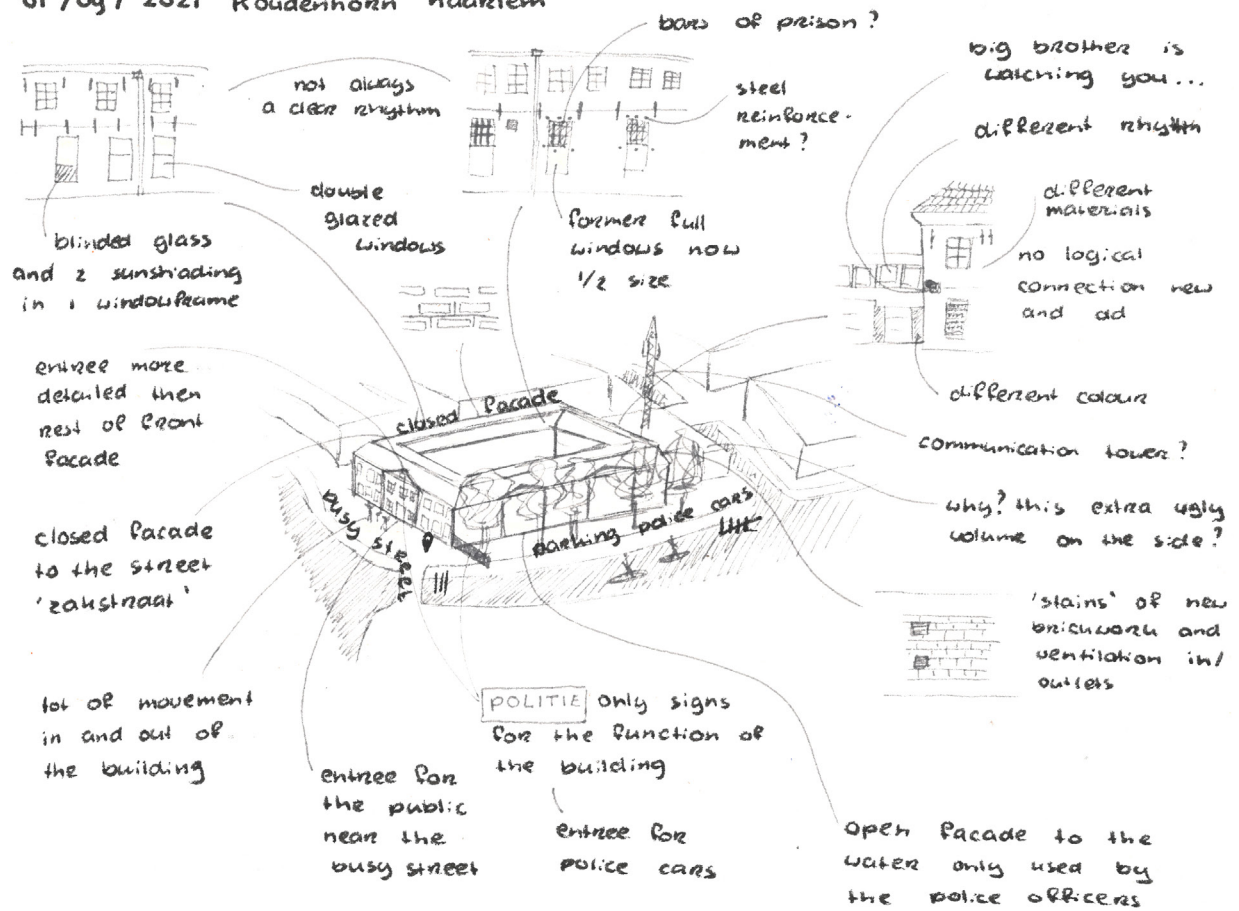 01/09/2021 Koudenhorn Haarlem
bars of prison?
big brother is
watching you...
not always
a clear rhythm
steel
reinforce-
ment?
different rhythm
different
materials
double
glazed
windows
former full
windows now
1/2 size
blinded glass
and 2 sunshading
in 1 windowframe
no logical
connection new
and old
entree more
detailed then
rest of front
facade
different colour
closed facade
communication tower?
busy street
parking police cars
why? this extra ugly
volume on the side?
closed facade
to the street
'zakstraat'
'stains' of new
brickwork and
ventilation in/
outlets
lot of movement
in and out of
the building
POLITIE only signs
for the function of
the building
entree for
the public
near the
busy street
entree for
police cars
open facade to the
water only used by
the police officers